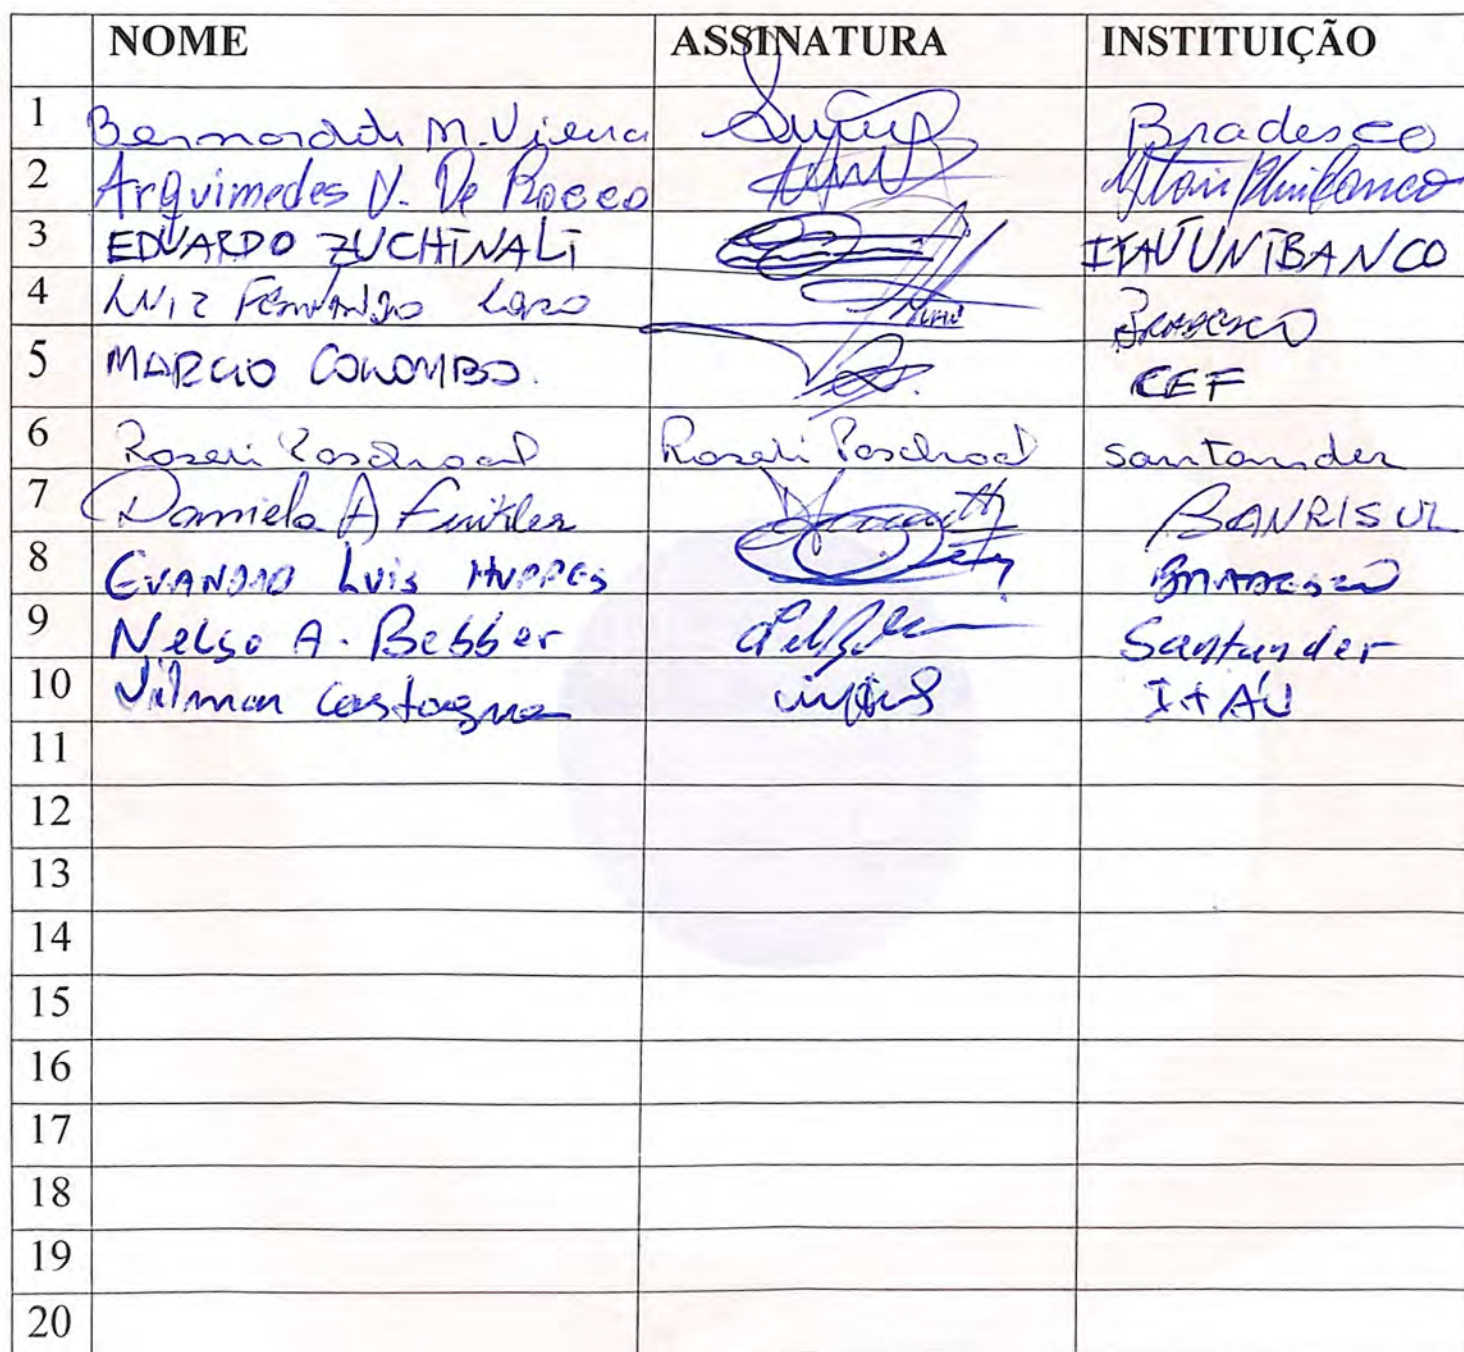 NOME ASSINATURA INSTITUIÇÃO
1 M. Vieira Bradesco
2 Arquimedes V. De Rocco Itaú Unibanco
3 EDUARDO ZUCHINALI ITAÚ UNIBANCO
4 LUIZ FERNANDO BRADESCO
5 MARCIO COLOMBO. CEF
6 Roseli Paschoal Roseli Paschoal Santander
7 Daniela A Finkler BANRISUL
8 EVANDRO LUIS BRADESCO
9 Nelso A. Bebber Santander
10 Vilmar Castagna ITAÚ
11
12
13
14
15
16
17
18
19
20